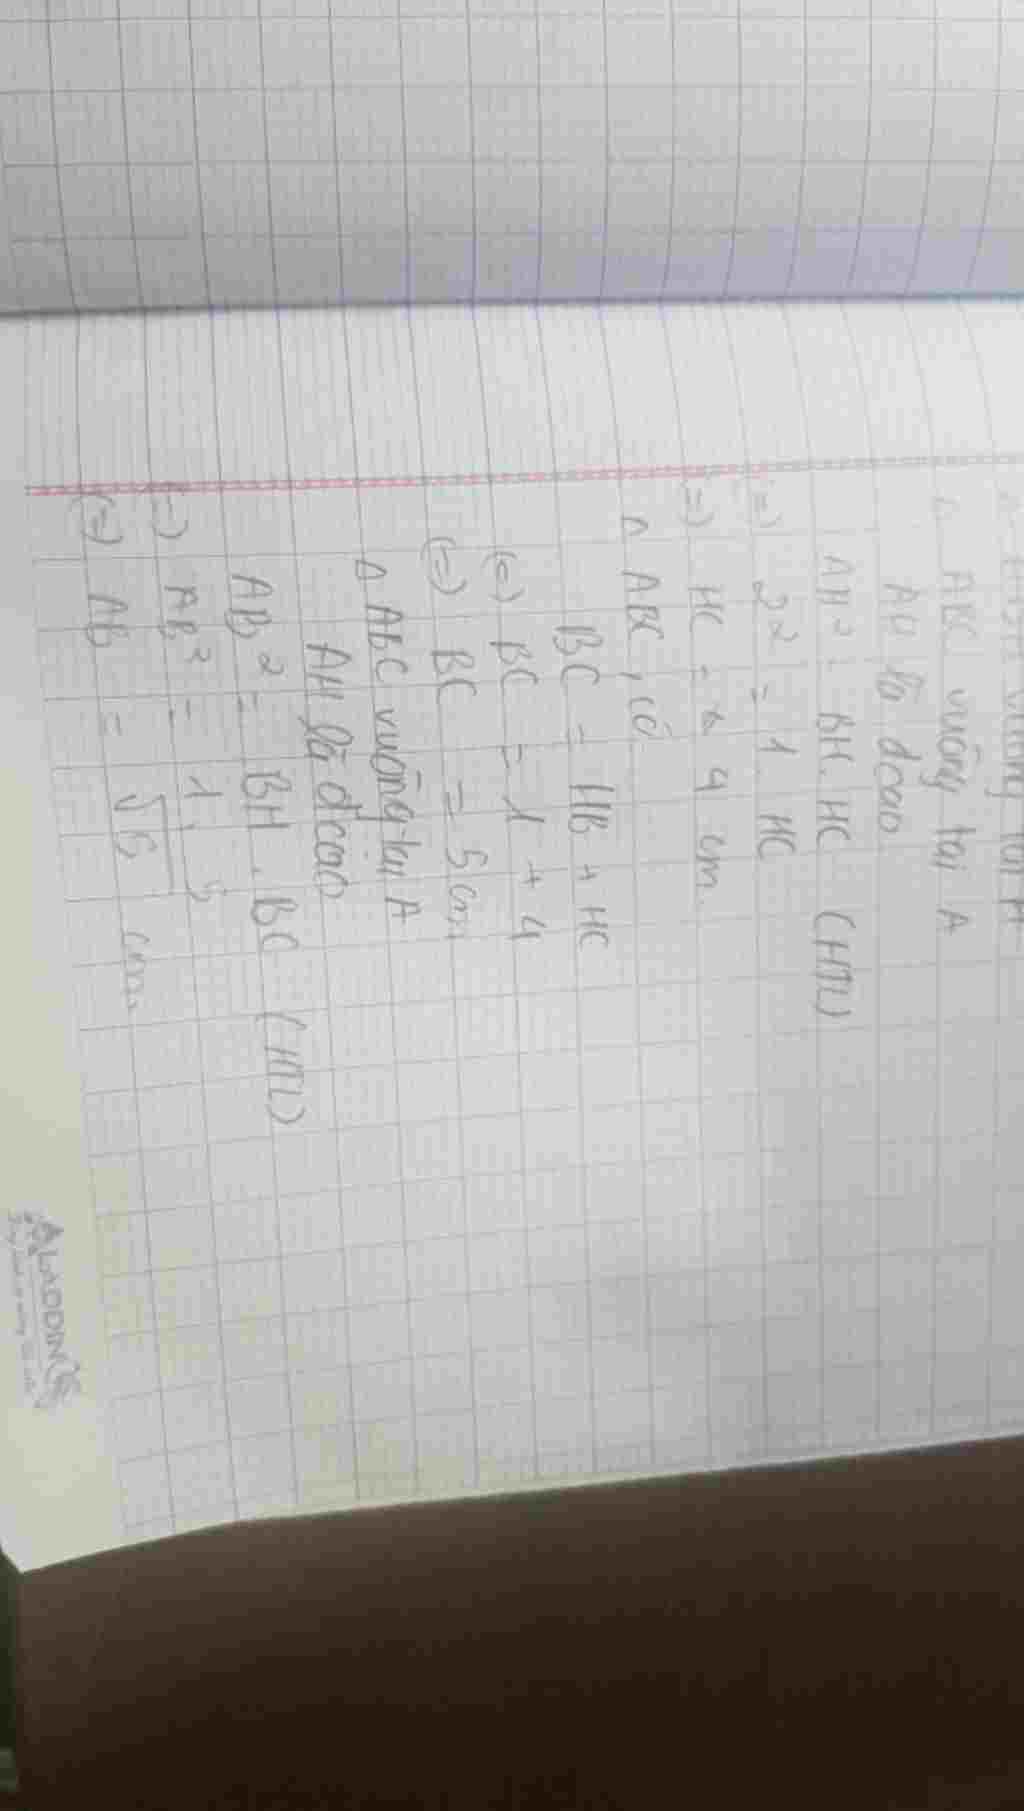 vuông tại A
Δ ABC vuông tại A
AH là đcao
AH² = BH. HC (HTL)
(=) 2² = 1. HC
(=) HC = 4 cm.
Δ ABC, có
BC = HB + HC
(=) BC = 1 + 4
(=) BC = 5 cm
Δ ABC vuông tại A
AH là đcao
AB² = BH . BC (HTL)
(=) AB² = 1. 5
(=) AB = √5 cm.
ALADDIN